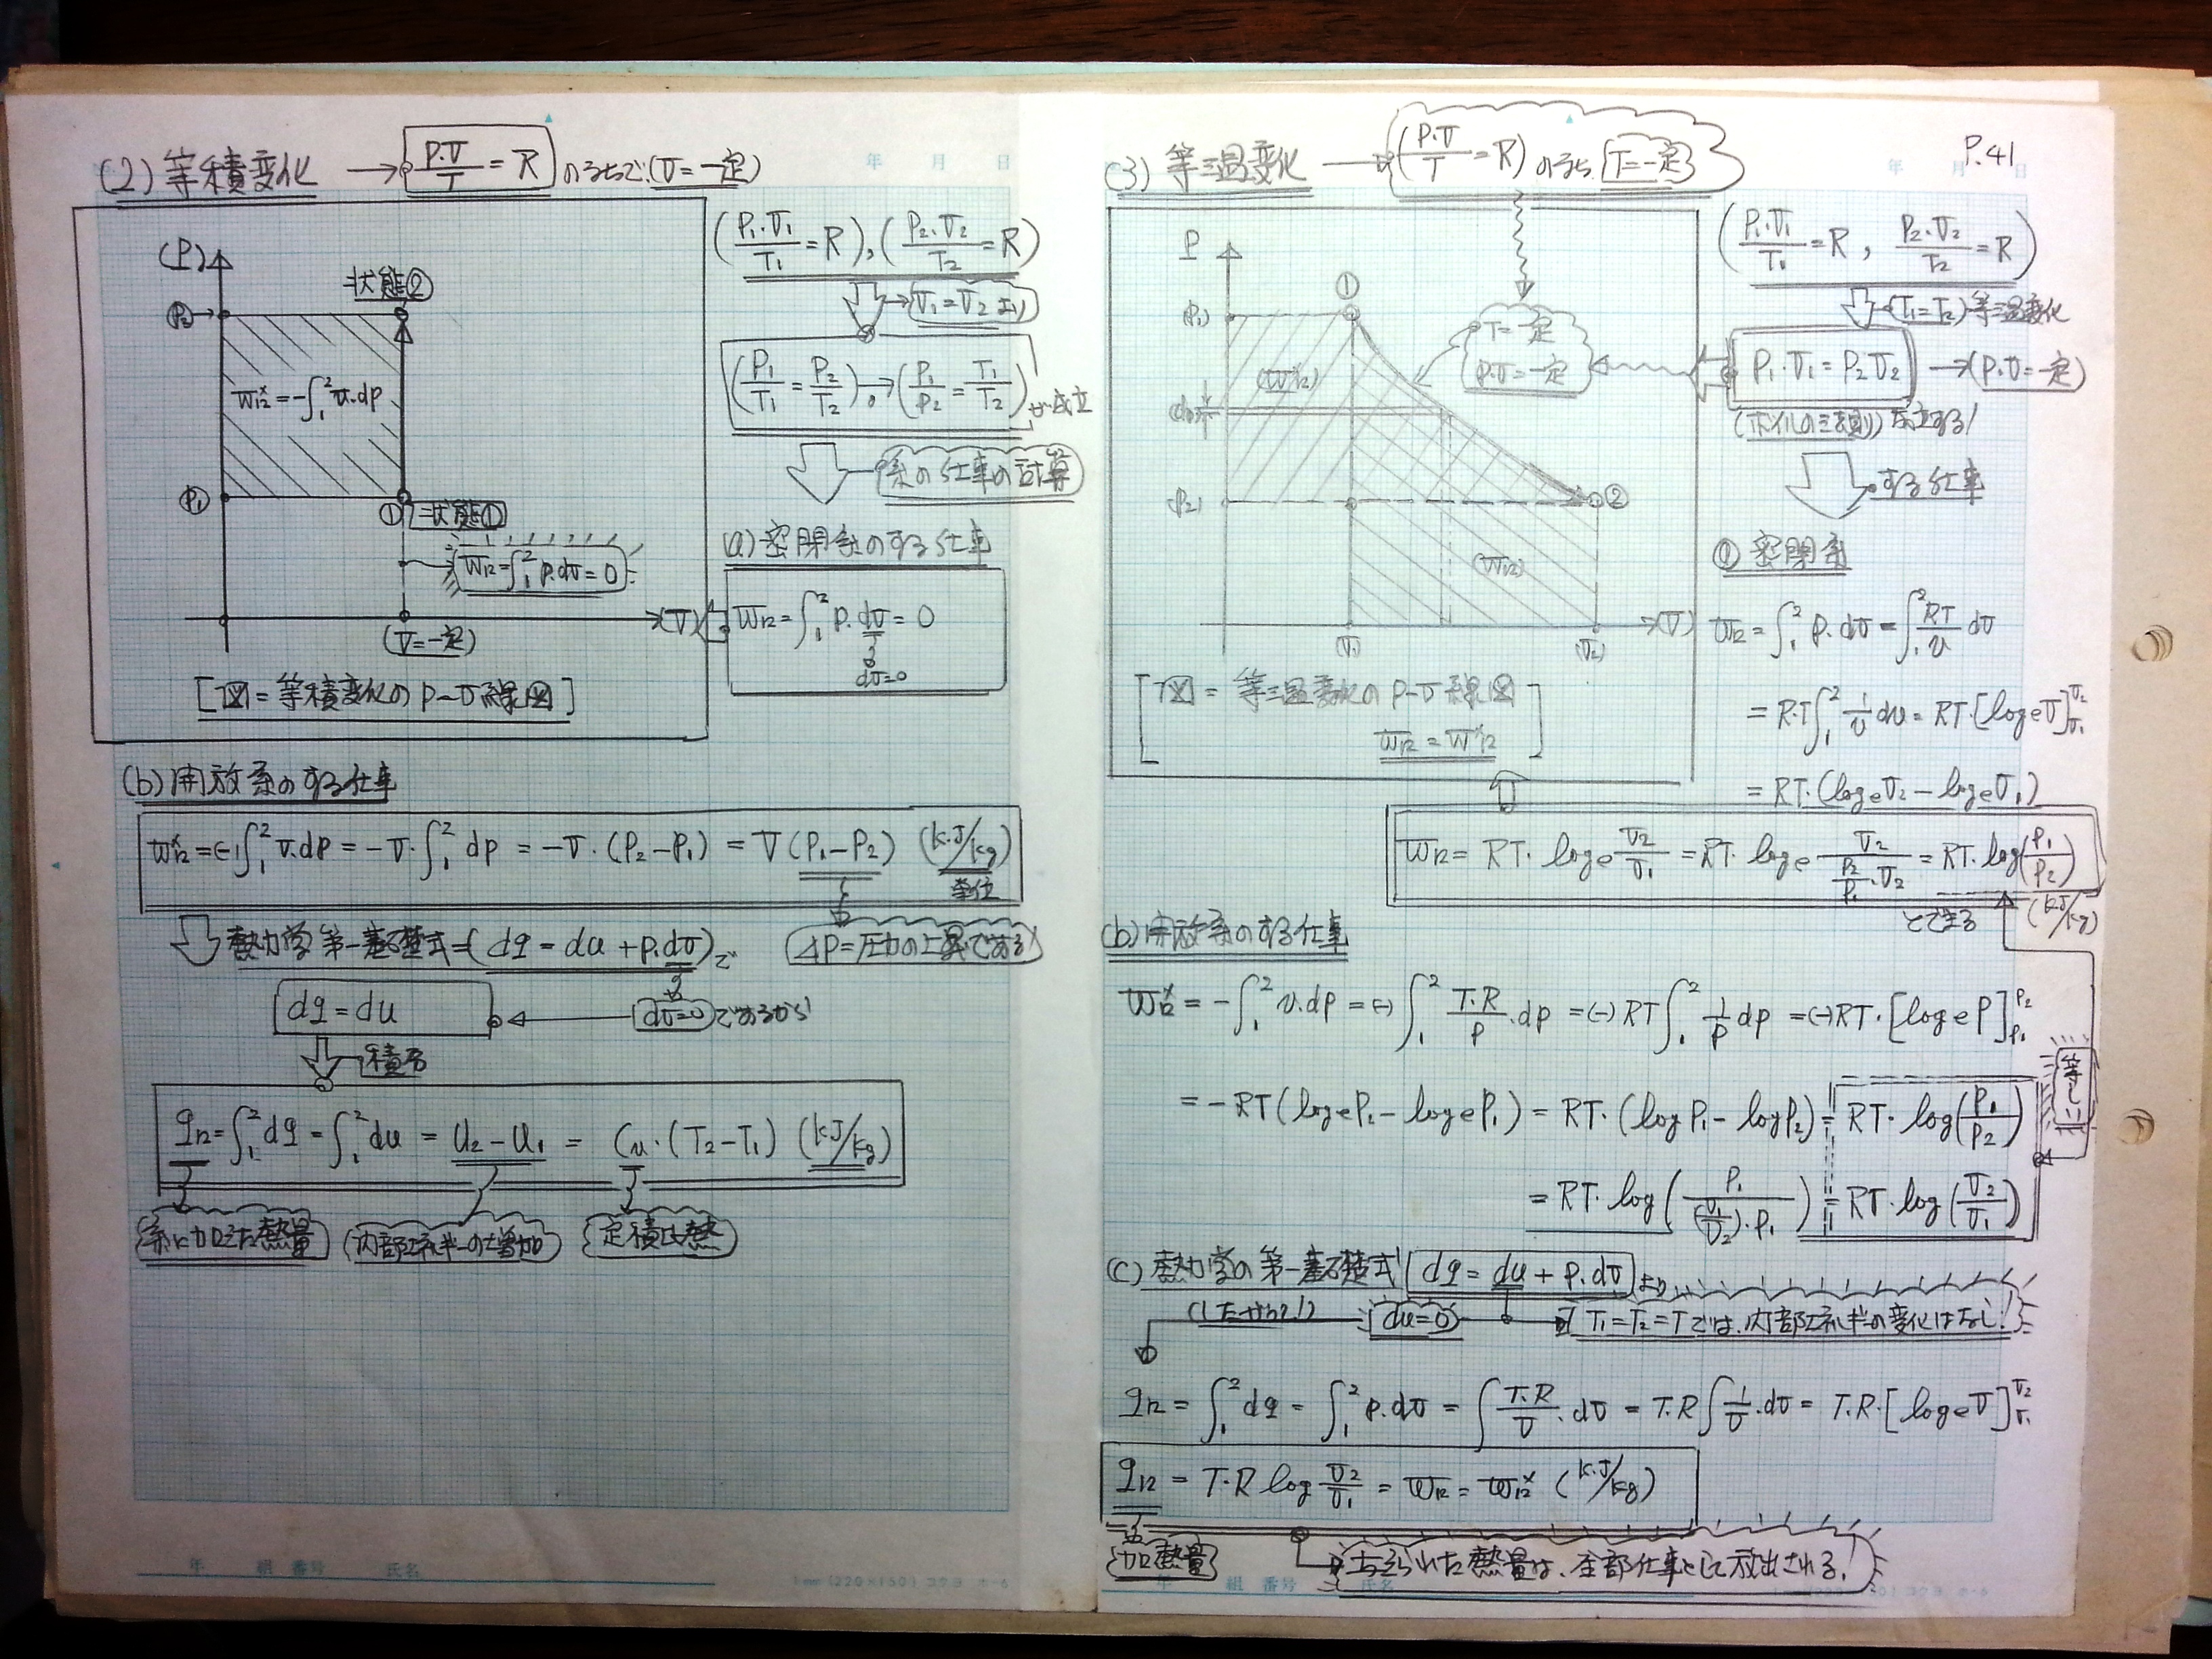 (2) 等積変化 → P・V/T = R のうちで (V=一定)
(P)
P₂
状態②
W₁₂* = -∫₁² v・dp
P₁
① 状態①
W₁₂=∫₁² P・dv = 0
(V)
(V=一定)
[図=等積変化の P-V線図]
(P₁・V₁/T₁ = R), (P₂・V₂/T₂ = R)
V₁=V₂より
(P₁/T₁ = P₂/T₂)。→(P₁/P₂ = T₁/T₂) が成立
系の仕事の計算
(a) 密閉系のする仕事
W₁₂ = ∫₁² P・dv = 0
dv=0
(b) 開放系のする仕事
W₁₂* = (-)∫₁² v・dp = -V・∫₁² dp = -V・(P₂-P₁) = V(P₁-P₂) (k.J/kg)
単位
熱力学第一基礎式=(dq = du + p.dv)で
ΔP=圧力の上昇である
dq = du
dv=0 であるから
積分
q₁₂=∫₁² dq = ∫₁² du = U₂-U₁ = Cv・(T₂-T₁) (kJ/kg)
系に加えた熱量
内部エネルギーの増加
定積比熱
P.41
(3) 等温変化 → (P・V/T = R) のうち T=一定
P
P₁
①
T=一定
P・V=一定
(W*₁₂)
dp
P₂
②
(W₁₂)
(V)
(V₁)
(V₂)
[図= 等温変化の P-V線図
W₁₂ = W*₁₂]
(P₁・V₁/T₁ = R , P₂・V₂/T₂ = R)
(T₁=T₂) 等温変化
P₁・V₁=P₂V₂ →(P・V=一定)
(ボイルの法則) 成立する!
する仕事
密閉系
W₁₂ = ∫₁² P・dv = ∫₁² RT/v dv
= R・T∫₁² 1/v dv = RT・[log e V]V₂V₁
= RT・(log e V₂ - log e V₁)
W₁₂ = RT・log e V₂/V₁ = RT・log e V₂/(P₂/P₁・V₂) = RT・log(P₁/P₂)
とできる (kJ/kg)
(b) 開放系のする仕事
W₁₂* = -∫₁² v・dp = (-)∫₁² T・R/P・dp = (-)RT∫₁² 1/P dp = (-)RT・[log e P]P₂P₁
等しい
= -RT(log e P₂ - log e P₁) = RT・(log P₁ - log P₂) = RT・log(P₁/P₂)
= RT・log(P₁/((V₁/V₂)・P₁)) = RT・log(V₂/V₁)
(c) 熱力学の第一基礎式 dq = du + P.dv より
(したがって!) du=0 T₁=T₂=Tでは、内部エネルギーの変化はなし!
q₁₂ = ∫₁² dq = ∫₁² P.dv = ∫ T.R/V・dv = T.R∫ 1/V・dv = T.R・[log e V]V₂V₁
q₁₂ = T・R log V₂/V₁ = W₁₂ = W₁₂* (k.J/kg)
加熱量
与えられた熱量は、全部仕事として放出される!
年 月 日
年 月 日
年 組 番号 氏名
年 組 番号 氏名